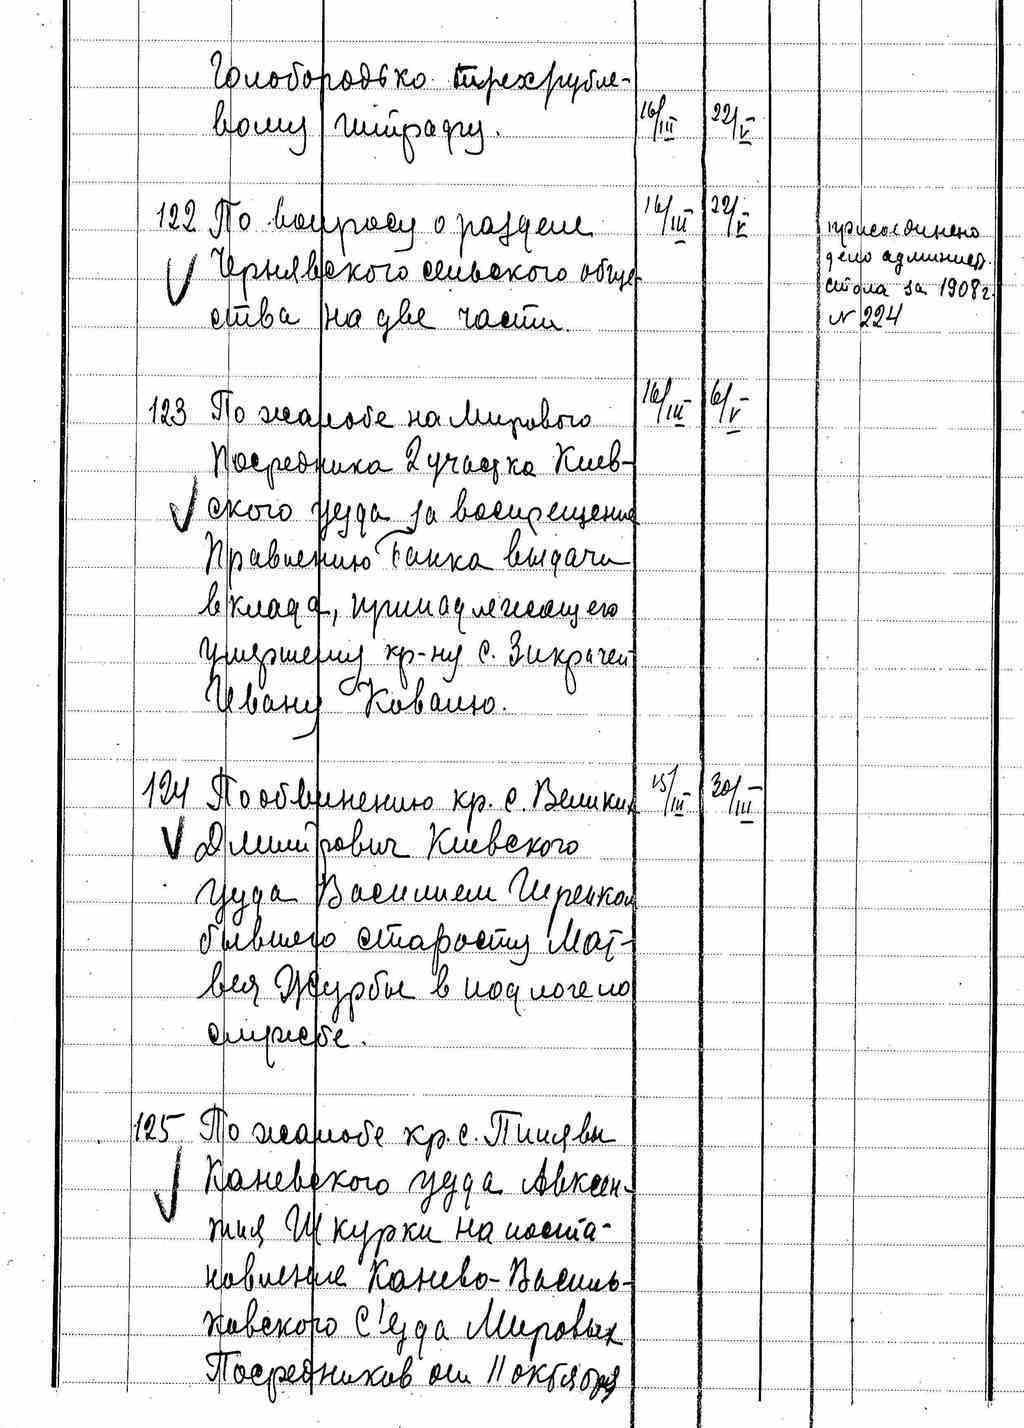 Голобородько трехрубле-
вому штрафу. 16/III 22/V
122 По вопросу о разделе 16/III 22/V
Чернявского сельского обще-
ства на две части.
присоединено
дело админист.
стола за 1908 г.
№ 224
123 По жалобе на Мирового 16/III 6/V
Посредника 2 участка Киев-
ского уезда за воспрещение
Правлению Банка выдачи
вклада, принадлежащего
умершему кр-ну с. Зикрачей
Ивану Ковалю.
124 По обвинению кр. с. Великих 15/III 30/III
Дмитрович Киевского
уезда Василием
бывшего старосту Мат-
вея Журбы в подлоге по
службе.
125 По жалобе кр. с. Пилявы
Каневского уезда Авксен-
тия Шкурки на поста-
новление Канево-Василь-
ковского С'езда Мировых
Посредников от 11 октября